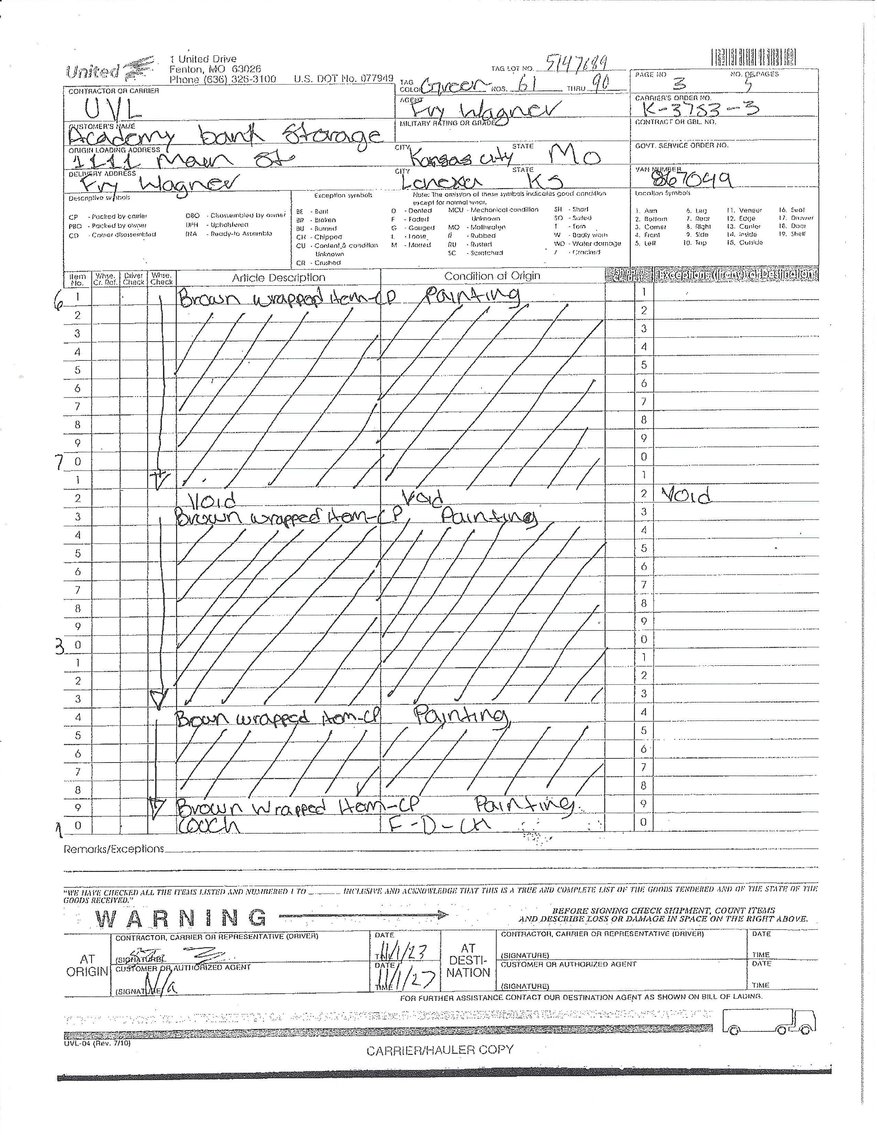 United
1 United Drive
Fenton, MO 63026
Phone (636) 326-3100 U.S. DOT No. 077949
TAG LOT NO. 5147689
TAG COLOR Green NOS. 61 THRU 90
PAGE NO. 3 NO. OF PAGES 5
CONTRACTOR OR CARRIER
UVL
AGENT
Fry Wagner
CARRIER'S ORDER NO.
K-3753-3
CUSTOMER'S NAME
Academy bank Storage
MILITARY RATING OR GRADE
CONTRACT OR GBL. NO.
ORIGIN LOADING ADDRESS
1111 Main St
CITY STATE
Kansas city Mo
GOVT. SERVICE ORDER NO.
DELIVERY ADDRESS
Fry Wagner
CITY STATE
Lenexa KS
VAN NUMBER
867049
Descriptive symbols
CP - Packed by carrier
PBO - Packed by owner
CD - Carrier disassembled
DBO - Disassembled by owner
UPH - Upholstered
RTA - Ready-to Assemble
Exception symbols
BE - Bent
BR - Broken
BU - Burned
CH - Chipped
CU - Content & condition Unknown
CR - Crushed
Note: The omission of these symbols indicates good condition except for normal wear.
D - Dented
F - Faded
G - Gouged
L - Loose
M - Marred
MCU - Mechanical condition Unknown
MO - Motheaten
R - Rubbed
RU - Rusted
SC - Scratched
SH - Short
SO - Soiled
T - Torn
W - Badly worn
WD - Water damage
Z - Cracked
Location Symbols
1. Arm
2. Bottom
3. Corner
4. Front
5. Left
6. Leg
7. Rear
8. Right
9. Side
10. Top
11. Veneer
12. Edge
13. Center
14. Inside
15. Outside
16. Seat
17. Drawer
18. Door
19. Shelf
Item No. Whse. Cr. Ref. Driver Check Whse. Check Article Description Condition at Origin Exceptions (if any) at Destination
6 1 Brown wrapped Item-CP Painting 1
2 2
3 3
4 4
5 5
6 6
7 7
8 8
9 9
7 0 0
1 1
2 Void Void 2 Void
3 Brown wrapped Item-CP, Painting 3
4 4
5 5
6 6
7 7
8 8
9 9
3 0 0
1 1
2 2
3 3
4 Brown wrapped Item-CP Painting 4
5 5
6 6
7 7
8 8
9 Brown wrapped Item-CP Painting 9
0 COOCH F-D-CH 0
Remarks/Exceptions
"WE HAVE CHECKED ALL THE ITEMS LISTED AND NUMBERED 1 TO INCLUSIVE AND ACKNOWLEDGE THAT THIS IS A TRUE AND COMPLETE LIST OF THE GOODS TENDERED AND OF THE STATE OF THE
GOODS RECEIVED."
WARNING
BEFORE SIGNING CHECK SHIPMENT, COUNT ITEMS
AND DESCRIBE LOSS OR DAMAGE IN SPACE ON THE RIGHT ABOVE.
AT ORIGIN
CONTRACTOR, CARRIER OR REPRESENTATIVE (DRIVER) DATE
(SIGNATURE) TIME 11/1/23
CUSTOMER OR AUTHORIZED AGENT DATE
(SIGNATURE) N/a TIME 11/1/27
AT DESTI-NATION
CONTRACTOR, CARRIER OR REPRESENTATIVE (DRIVER) DATE
(SIGNATURE) TIME
CUSTOMER OR AUTHORIZED AGENT DATE
(SIGNATURE) TIME
FOR FURTHER ASSISTANCE CONTACT OUR DESTINATION AGENT AS SHOWN ON BILL OF LADING.
UVL-04 (Rev. 7/10)
CARRIER/HAULER COPY